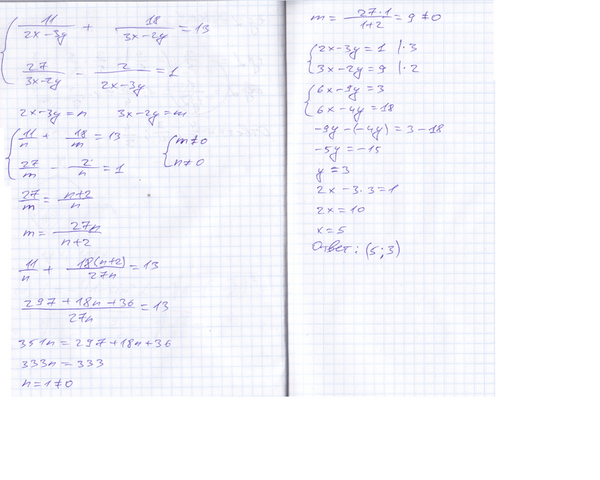 11/(2x-3y) + 18/(3x-2y) = 13
27/(3x-2y) - 2/(2x-3y) = 1
2x-3y=n 3x-2y=m
11/n + 18/m = 13 { m≠0
27/m - 2/n = 1 n≠0
27/m = (n+2)/n
m = 27n/(n+2)
11/n + 18(n+2)/27n = 13
(297+18n+36)/27n = 13
351n = 297+18n+36
333n = 333
n=1≠0
m = 27·1/(1+2) = 9 ≠0
2x-3y=1 |·3
3x-2y=9 |·2
6x-9y=3
6x-4y=18
-9y-(-4y)=3-18
-5y=-15
y=3
2x-3·3=1
2x=10
x=5
Ответ: (5;3)